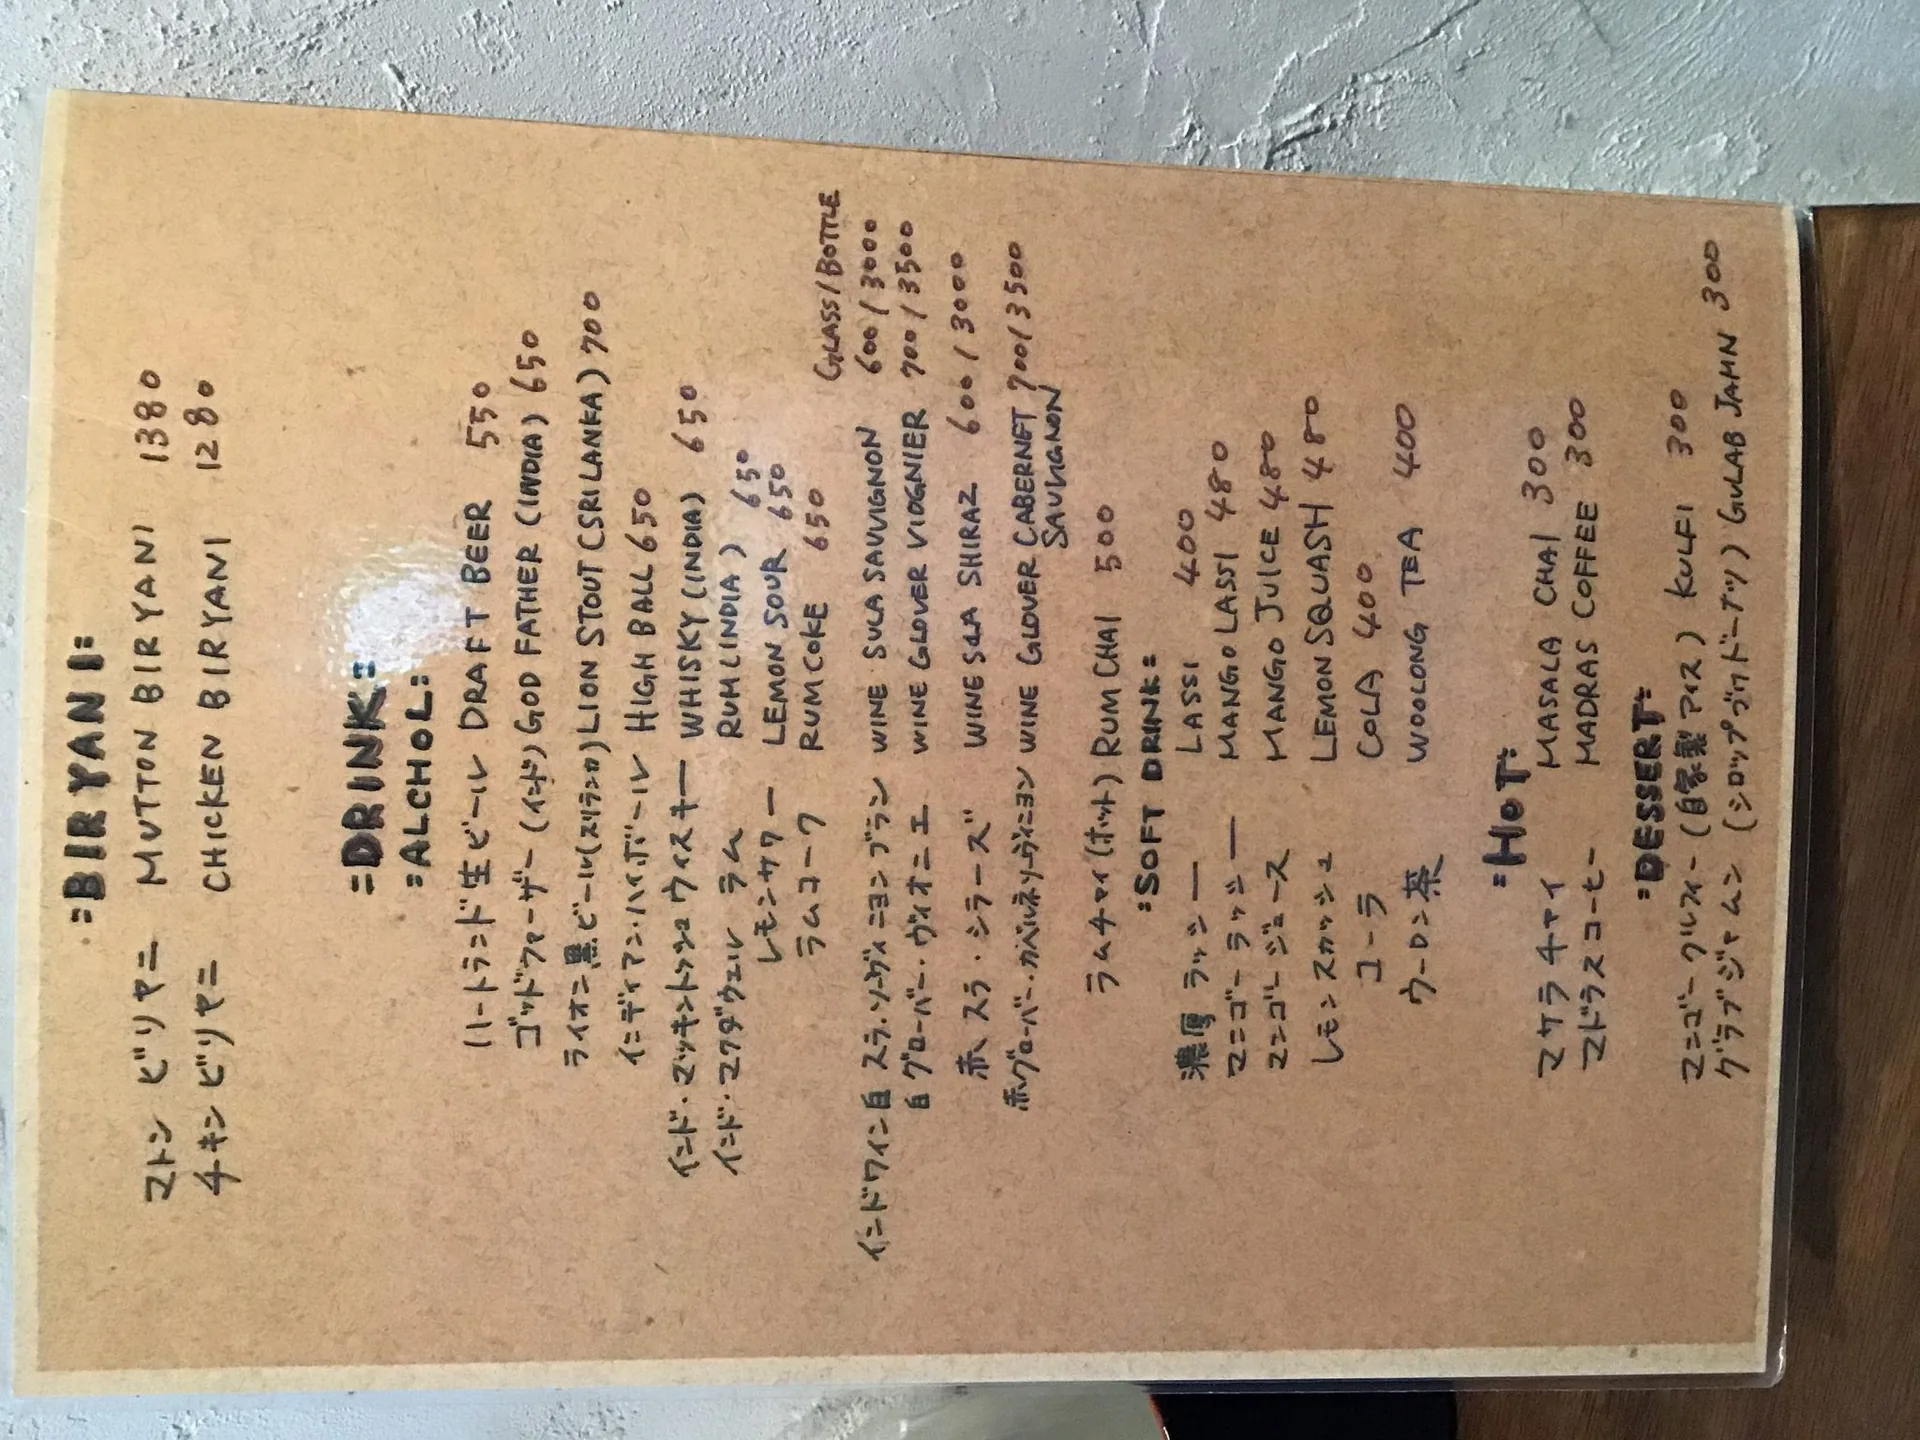 =BIRYANI=
マトン ビリヤニ MUTTON BIRYANI 1380
チキン ビリヤニ CHICKEN BIRYANI 1280
=DRINK=
=ALCHOL=
ハートランド生ビール DRAFT BEER 550
ゴッドファーザー(インド) GOD FATHER (INDIA) 650
ライオン黒ビール(スリランカ) LION STOUT (SRILANKA) 700
インディアン・ハイボール HIGH BALL 650
インド・マッキントッシュ ウィスキー WHISKY (INDIA) 650
インド・マクダウェル ラム RUM (INDIA) 650
レモンサワー LEMON SOUR 650
ラムコーク RUM COKE 650
GLASS/BOTTLE
インドワイン白 スラ・ソーヴィニヨンブラン WINE SULA SAUVIGNON 600/3000
白 グローバー・ヴィオニエ WINE GLOVER VIOGNIER 700/3500
赤 スラ・シラーズ WINE SULA SHIRAZ 600/3000
赤グローバー・カベルネソーヴィニヨン WINE GLOVER CABERNET 700/3500
SAUVIGNON
ラムチャイ(ホット) RUM CHAI 500
=SOFT DRINK=
濃厚 ラッシー LASSI 400
マンゴーラッシー MANGO LASSI 480
マンゴージュース MANGO JUICE 480
レモンスカッシュ LEMON SQUASH 480
コーラ COLA 400
ウーロン茶 WOOLONG TEA 400
=HOT=
マサラチャイ MASALA CHAI 300
マドラスコーヒー MADRAS COFFEE 300
=DESSERT=
マンゴークルフィー(自家製アイス) KULFI 300
グラブジャムン (シロップづけドーナツ) GULAB JAMN 300